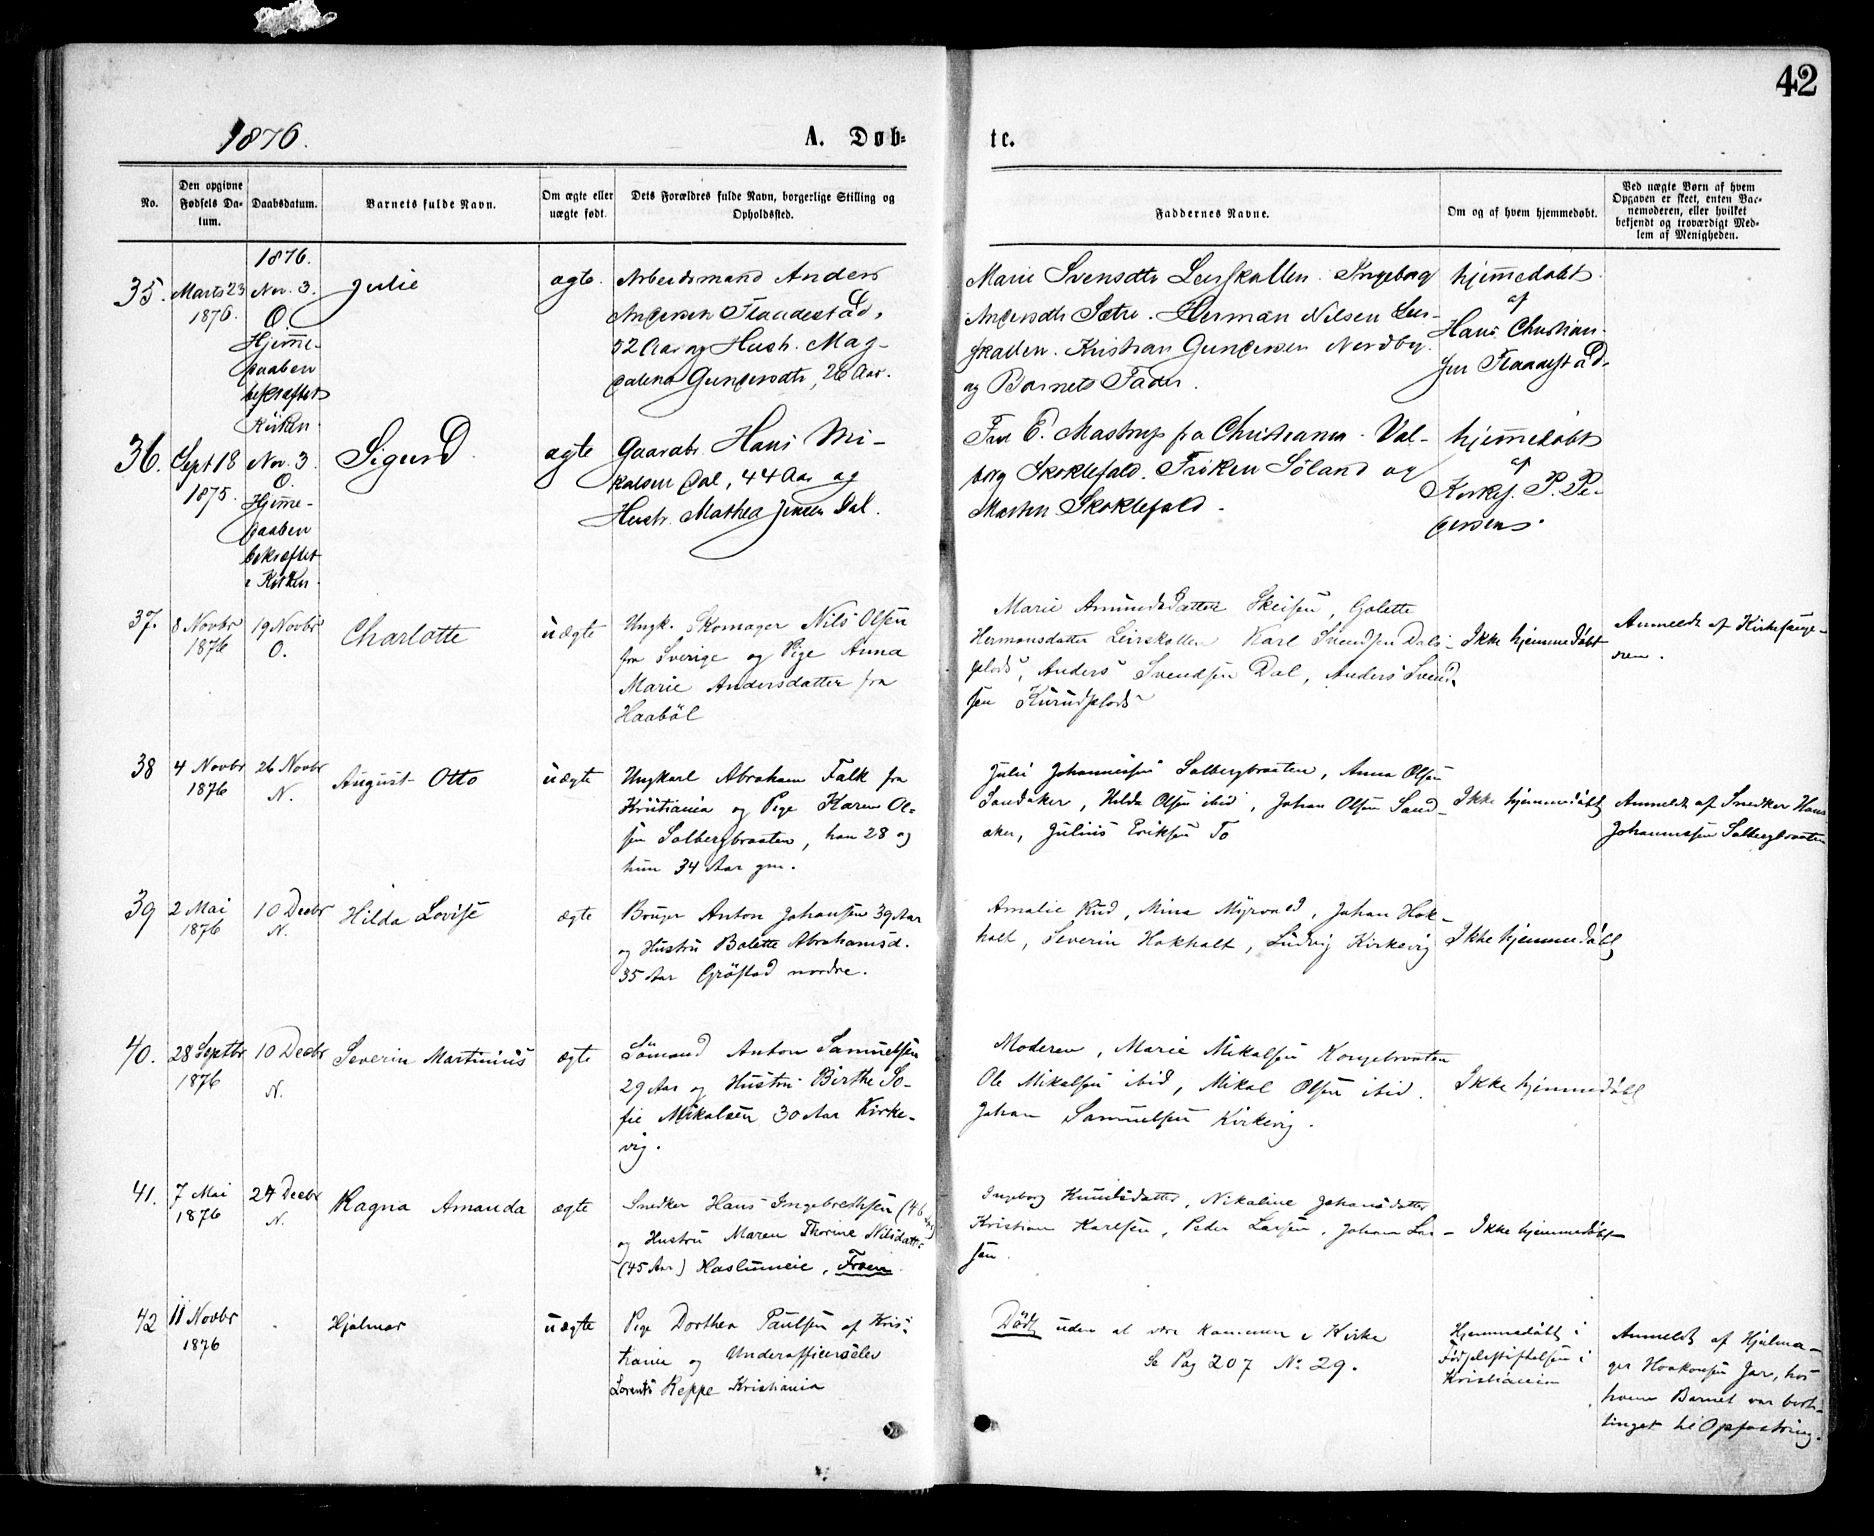 42
1876.
A. Døb-
te.
No.
Den opgivne
Fødsels Da-
tum.
Daabsdatum.
Barnets fulde Navn.
Om ægte eller
uægte født.
Dets Forældres fulde Navn, borgerlige Stilling og
Opholdssted.
Faddernes Navne.
Om og af hvem hjemmedøbt.
Ved uægte Børn af hvem
Opgaven er skeet, enten Bar-
nemoderen, eller hvilket
bekjendt og troværdigt Med-
lem af Menigheden.
35.
Marts 23
1876.
1876.
Nov. 3.
O
Hjemme-
daaben
bekræftet
Kirken.
Julie
ægte.
Arbeidsmand Anders
Andersen Flaadestad,
52 Aar og Hustr. Mag-
dalena Gundersdtr, 26 Aar.
Marie Svensdtr Leirskallen. Ingeborg
Andersdtr Sætre. Herman Nilsen Leir-
skallen. Kristian Gundersen Nordby.
og Barnets Fader.
hjemmedøbt
af
Hans Christian-
sen Flaadestad.
36.
Sept 18
1875.
Nov. 3.
O.
Hjemme-
daaben
bekræftet
i Kirken.
Sigurd
ægte
Gaardbr. Hans Mi-
kalsen Dal, 44 Aar og
Hustr. Mathea Jensen Dal.
Fru E. Mastrup fra Christiania. Val-
borg Skoklefald. Frøken Søland og
Morten Skoklefald.
hjemmedøbt
af
Kirkes. P. Pe-
dersens.
37.
8 Novbr
1876
19 Novbr
O.
Charlotte
uægte
Ungk. Skomager Nils Olsen
fra Sverige og Pige Anna
Marie Andersdatter fra
Haabøl
Marie Amundsdatter Skeisen, Golette
Hermansdatter Leirskallen Karl Svendsen Dals-
plads, Anders Svendsen Dal, Anders Svend-
sen Kurudplads
Ikke hjemmedøbt
Anmeldt af Kirkesange-
ren.
38
4 Novbr
1876
26 Novbr
N.
August Otto
uægte
Ungkarl Abraham Falk fra
Kristiania og Pige Karen Ol-
sen Solbergbraaten, han 28 og
hun 34 Aar gm.
Julie Johannessen Solbergbraaten, Anna Olsen
Sandaker, Hilda Olsen ibid, Johan Olsen Sand-
aker, Julius Eriksen To
Ikke hjemmedøbt
Anmeldt af Snedker Hans
Johannessen Solbergbraaten
39
2 Mai
1876
10 Decbr
N.
Hilda Lovise
ægte
Bruger Anton Johansen 39 Aar
og Hustru Bolette Abrahamsd.
35 Aar Grøstad nordre.
Amalie Rud, Mina Myrvold, Johan Hok-
holt, Severin Hokholt, Ludvig Kirkevig
Ikke hjemmedøbt
40.
28 Septbr
1876
10 Decbr
N.
Severin Martinius
ægte
Sømand Anton Samuelsen
29 Aar og Hustru Birthe So-
fie Mikalsen 30 Aar Kirke-
vig.
Moderen, Marie Mikalsen Kongebraaten
Ole Mikalsen ibid, Mikal Olsen ibid.
Johan Samuelsen Kirkevig.
Ikke hjemmedøbt
41.
7 Mai
1876
27 Decbr
N.
Ragna Amanda
ægte
Snedker Hans Ingebrethsen (46 Aar)
og Hustru Maren Thorine Nilsdatter
(45 Aar) Haslumeie, Froen.
Ingeborg Knudsdatter, Nikoline Johansdatter
Kristian Karlsen, Peder Larsen, Johan Lar-
sen.
Ikke hjemmedøbt
42
11 Novbr
1876
Hjalmar
uægte
Pige Dorthea Paulsen af Kris-
tiania og Underofficerselev
Lorents Reppe Kristiania
Død uden at være kommen i Kirke
Se Pag 207 No 29.
Hjemmedøbt i
Fødselsstiftelsen i
Kristiania
Anmeldt af Hjulma-
ger Haakonsen Jar, hos
hvem Barnet var bort-
tinget til Opfostring.